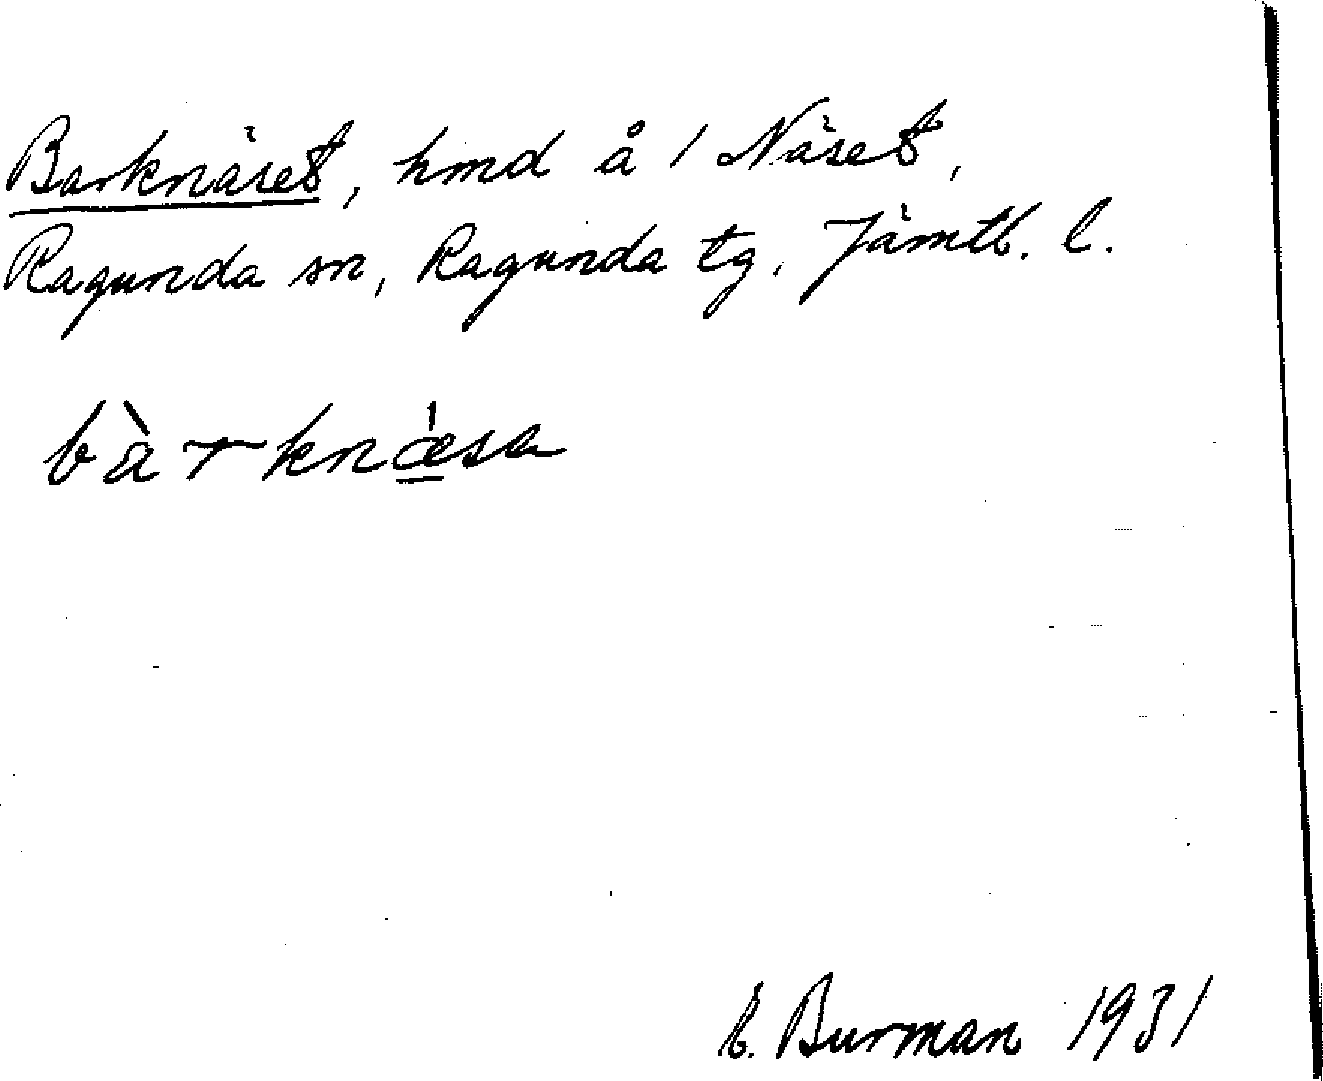 Barknäset, hmd å 1 Näset,
Ragunda sn, Ragunda tg, Jämtl. l.
bàrknæ̀sa
E. Burman 1931